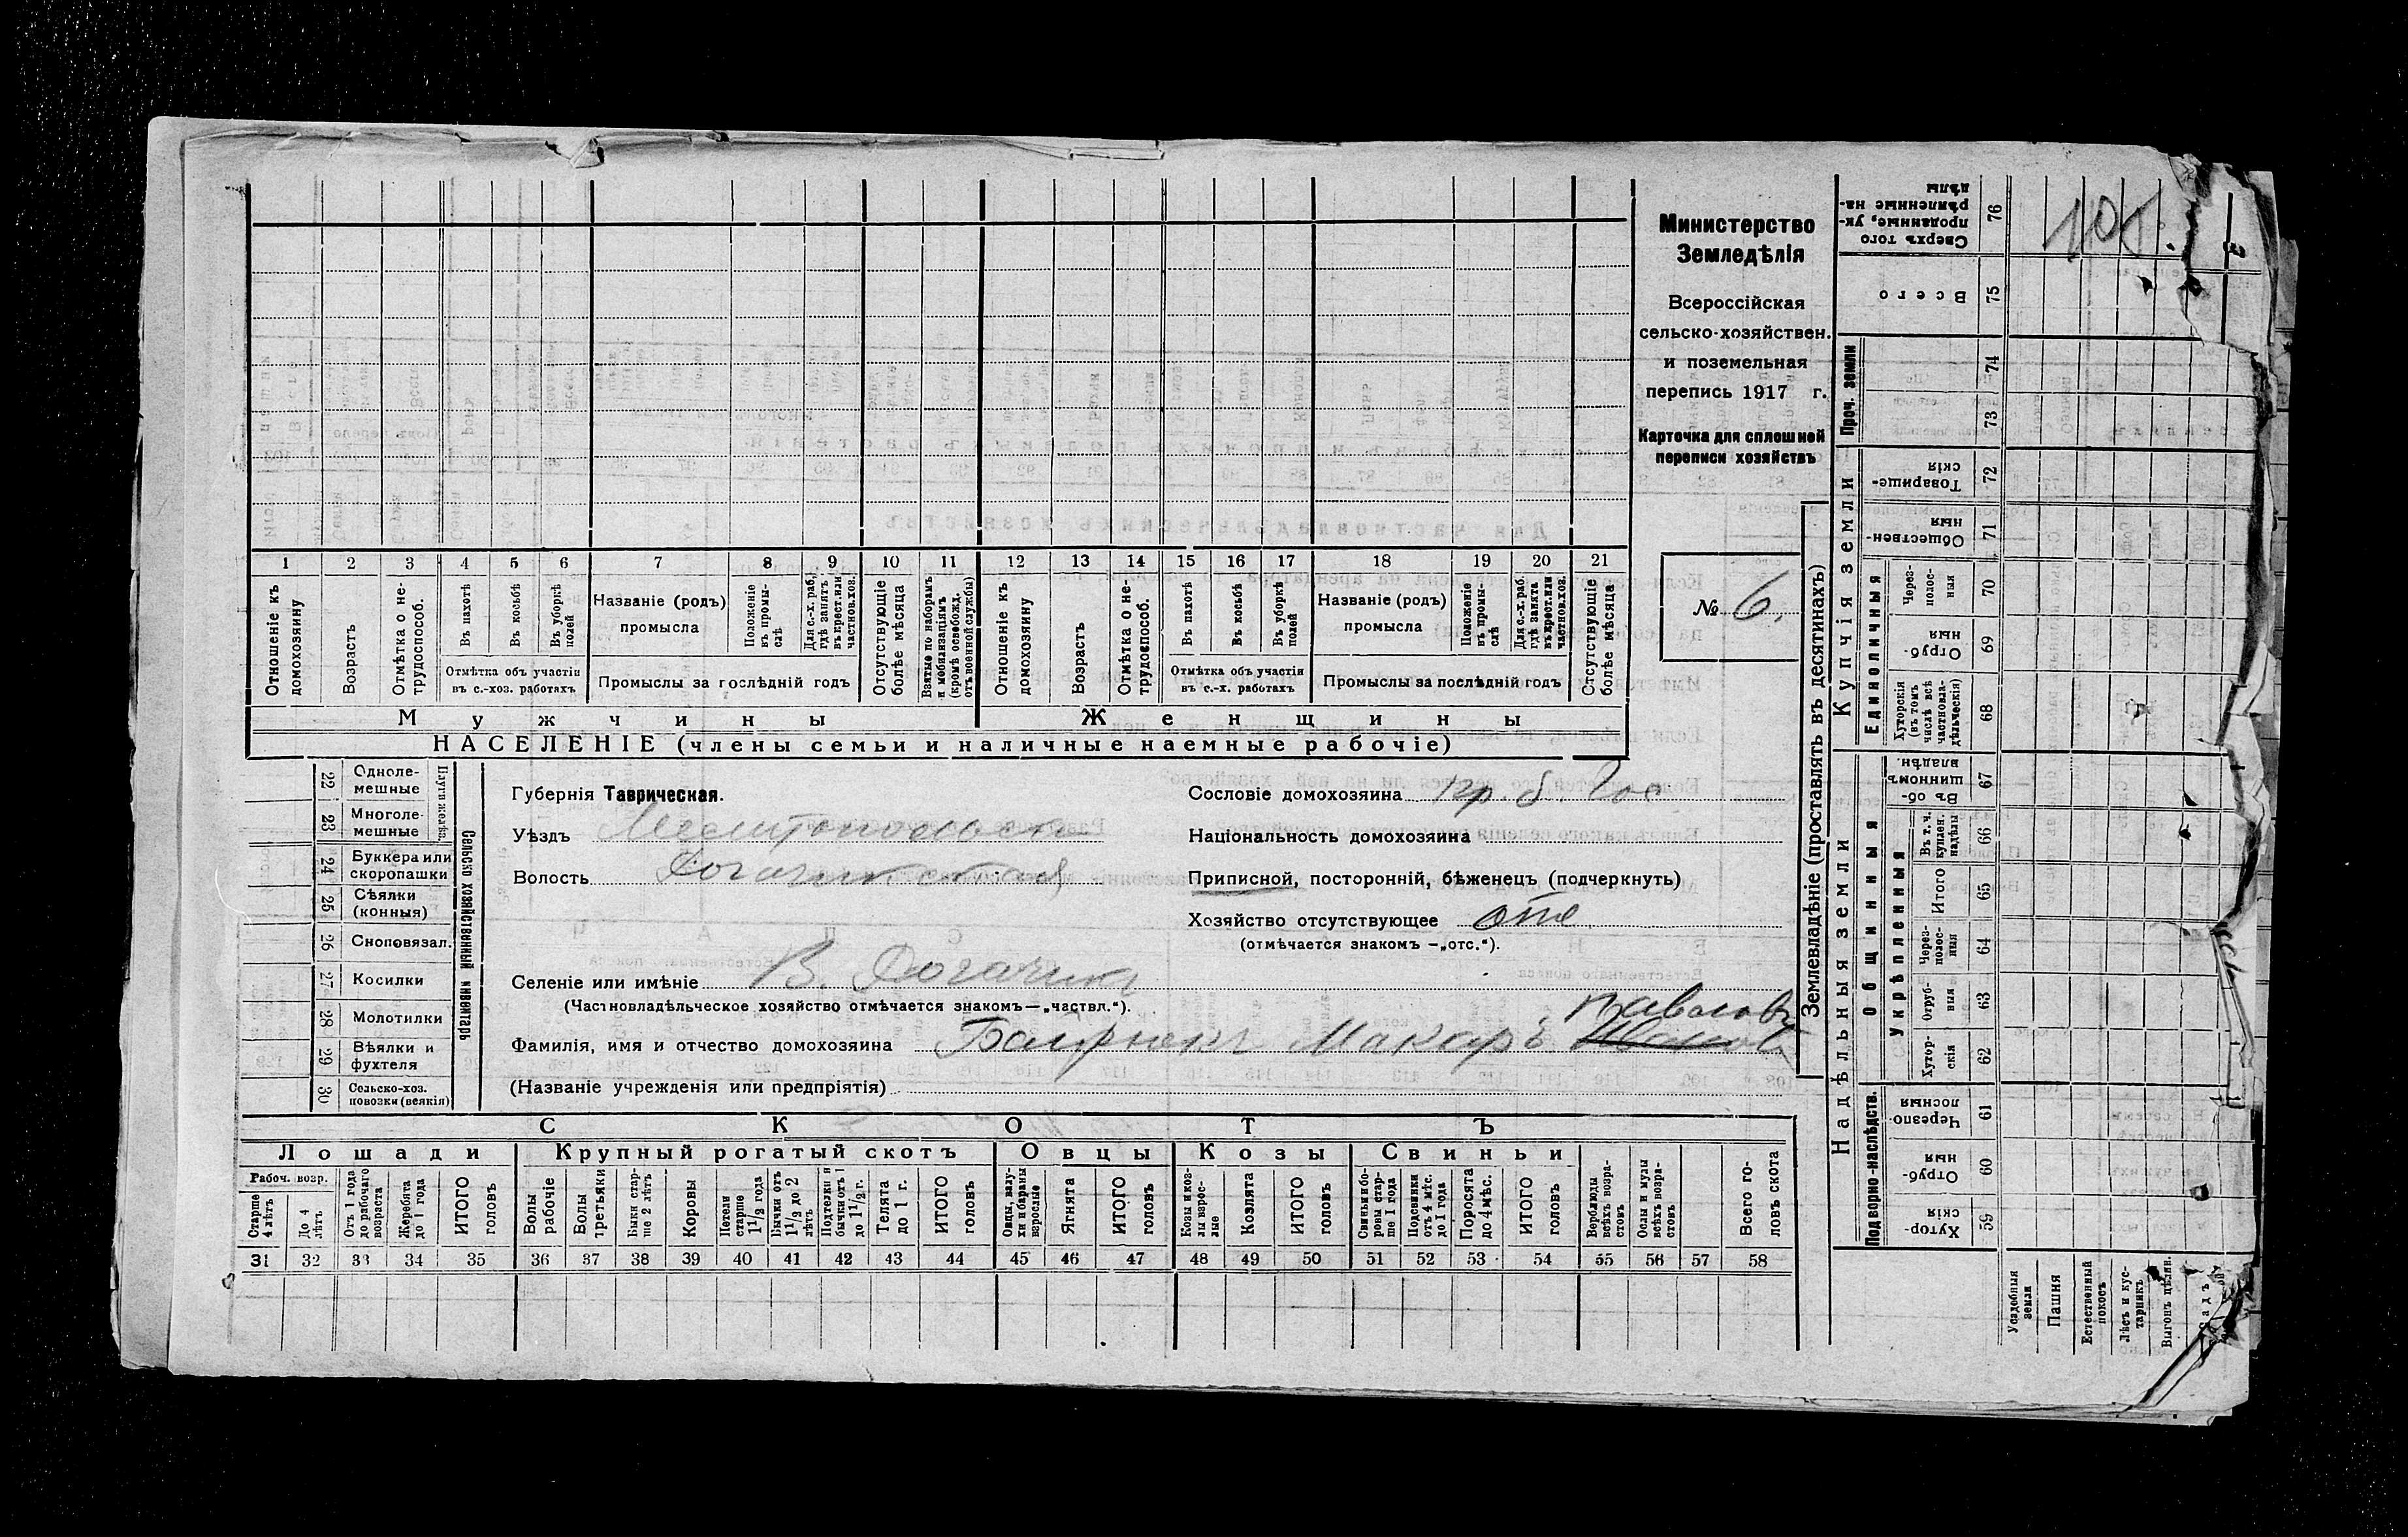 Министерство
Земледѣлія
Всероссійская
сельско-хозяйствен.
и поземельная
перепись 1917 г.
Карточка для сплошной
переписи хозяйствъ
№ 6.
101
1 2 3 4 5 6 7 8 9 10 11 12 13 14 15 16 17 18 19 20 21
Отношеніе къ домохозяину
Возрастъ
Отмѣтка о не-трудоспособ.
Въ пахотѣ
Въ косьбѣ
Въ уборкѣ полей
Отмѣтка объ участіи въ с.-хоз. работахъ
Названіе (родъ) промысла
Положеніе въ промы-слѣ
Для с.-х. раб. гдѣ занятъ въ крест. или частнов. хоз.
Промыслы за послѣдній годъ
Отсутствующіе болѣе мѣсяца
Взятые по наборамъ и мобилизаціямъ (кромѣ освобожд. отъ военной службы)
Отношеніе къ домохозяину
Возрастъ
Отмѣтка о не-трудоспособ.
Въ пахотѣ
Въ косьбѣ
Въ уборкѣ полей
Отмѣтка объ участіи въ с.-х. работахъ
Названіе (родъ) промысла
Положеніе въ промы-слѣ
Для с.-х. раб. гдѣ занята въ крест. или частнов. хоз.
Промыслы за послѣдній годъ
Отсутствующіе болѣе мѣсяца
Мужчины Женщины
НАСЕЛЕНІЕ (члены семьи и наличные наемные рабочіе)
Сельско хозяйственный инвентарь
Плуги желѣз.
22 Однолемешные
23 Многолемешные
24 Буккера или скоропашки
25 Сѣялки (конныя)
26 Сноповязал.
27 Косилки
28 Молотилки
29 Вѣялки и фухтеля
30 Сельско-хоз. повозки (всякія)
Губернія Таврическая.
Уѣздъ Мелитопольскій
Волость Рогачикская
Селеніе или имѣніе В. Рогачик
(Частновладѣльческое хозяйство отмѣчается знакомъ—„частвл.“).
Сословіе домохозяина кр. б. Гос
Національность домохозяина
Приписной, посторонній, бѣженецъ (подчеркнуть)
Хозяйство отсутствующее отс.
(отмѣчается знакомъ —„отс.“).
Павловъ
Фамилія, имя и отчество домохозяина Байрюкъ Макаръ
(Названіе учрежденія или предпріятія)
СКОТЪ
Лошади Крупный рогатый скотъ Овцы Козы Свиньи
Рабоч. возр.
Старше 4 лѣтъ
До 4 лѣтъ
Отъ 1 года до рабочаго возраста
Жеребята до 1 года
ИТОГО головъ
Волы рабочіе
Волы третьяки
Быки стар-ше 2 лѣтъ
Коровы
Нетели старше 1½ года
Бычки отъ 1½ до 2 лѣтъ
Подтелки и бычки отъ 1 до 1½ г.
Телята до 1 г.
ИТОГО головъ
Овцы, валу-хи и бараны взрослые
Ягнята
ИТОГО головъ
Козы и коз-лы взрос-лые
Козлята
ИТОГО головъ
Свиньи и бо-ровы стар-ше 1 года
Подсвинки отъ 4 мѣс. до 1 года
Поросята до 4 мѣс.
ИТОГО головъ
Верблюды всѣхъ возра-стовъ
Ослы и мулы всѣхъ возра-стовъ
Всего го-ловъ скота
31 32 33 34 35 36 37 38 39 40 41 42 43 44 45 46 47 48 49 50 51 52 53 54 55 56 57 58
Землевладѣніе (проставлять въ десятинахъ)
Надѣльныя земли Купчія земли Проч. земли
Подворно-наслѣдств.
Общинныя
Укрѣпленныя
Единоличныя
Хутор-скія 59
Отруб-ныя 60
Черезпо-лосныя 61
Хутор-скія 62
Отруб-ныя 63
Черезполос-ныя 64
Итого 65
Въ т. ч. куплен. надѣлы 66
Въ об-щинномъ владѣн. 67
Хуторскія (въ томъ числѣ всѣ частновла-дѣльческія) 68
Отруб-ныя 69
Через-полос-ныя 70
Обществен-ныя 71
Товарище-скія 72
73
74
Всего 75
Сверхъ того проданные, ук-рѣпленные на-дѣлы 76
Усадебныя земли
Пашня
Естественный покосъ
Лѣсъ и кус-тарникъ
Выгонъ цѣлин.